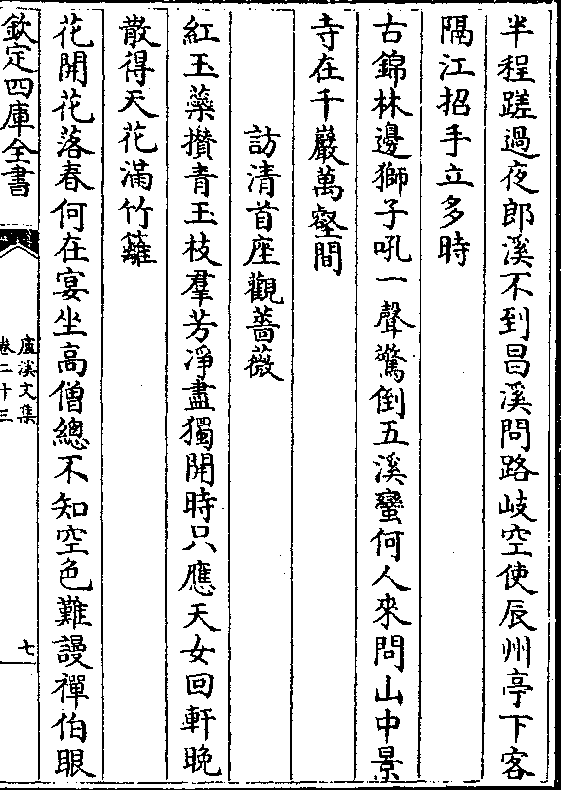 半程蹉過夜郎溪不到昌溪問路岐空使辰州亭下客
隔江招手立多時
古錦林邊獅子吼一聲驚倒五溪蠻何人來問山中景
寺在千巖萬壑間
訪清首座觀薔薇
紅玉蘂攢青玉枝羣芳淨盡獨開時只應天女回軒晚
散得天花滿竹籬
花開花落春何在宴坐高僧總不知空色難謾禪伯眼
欽定四庫全書
盧溪文集
卷二十三
七